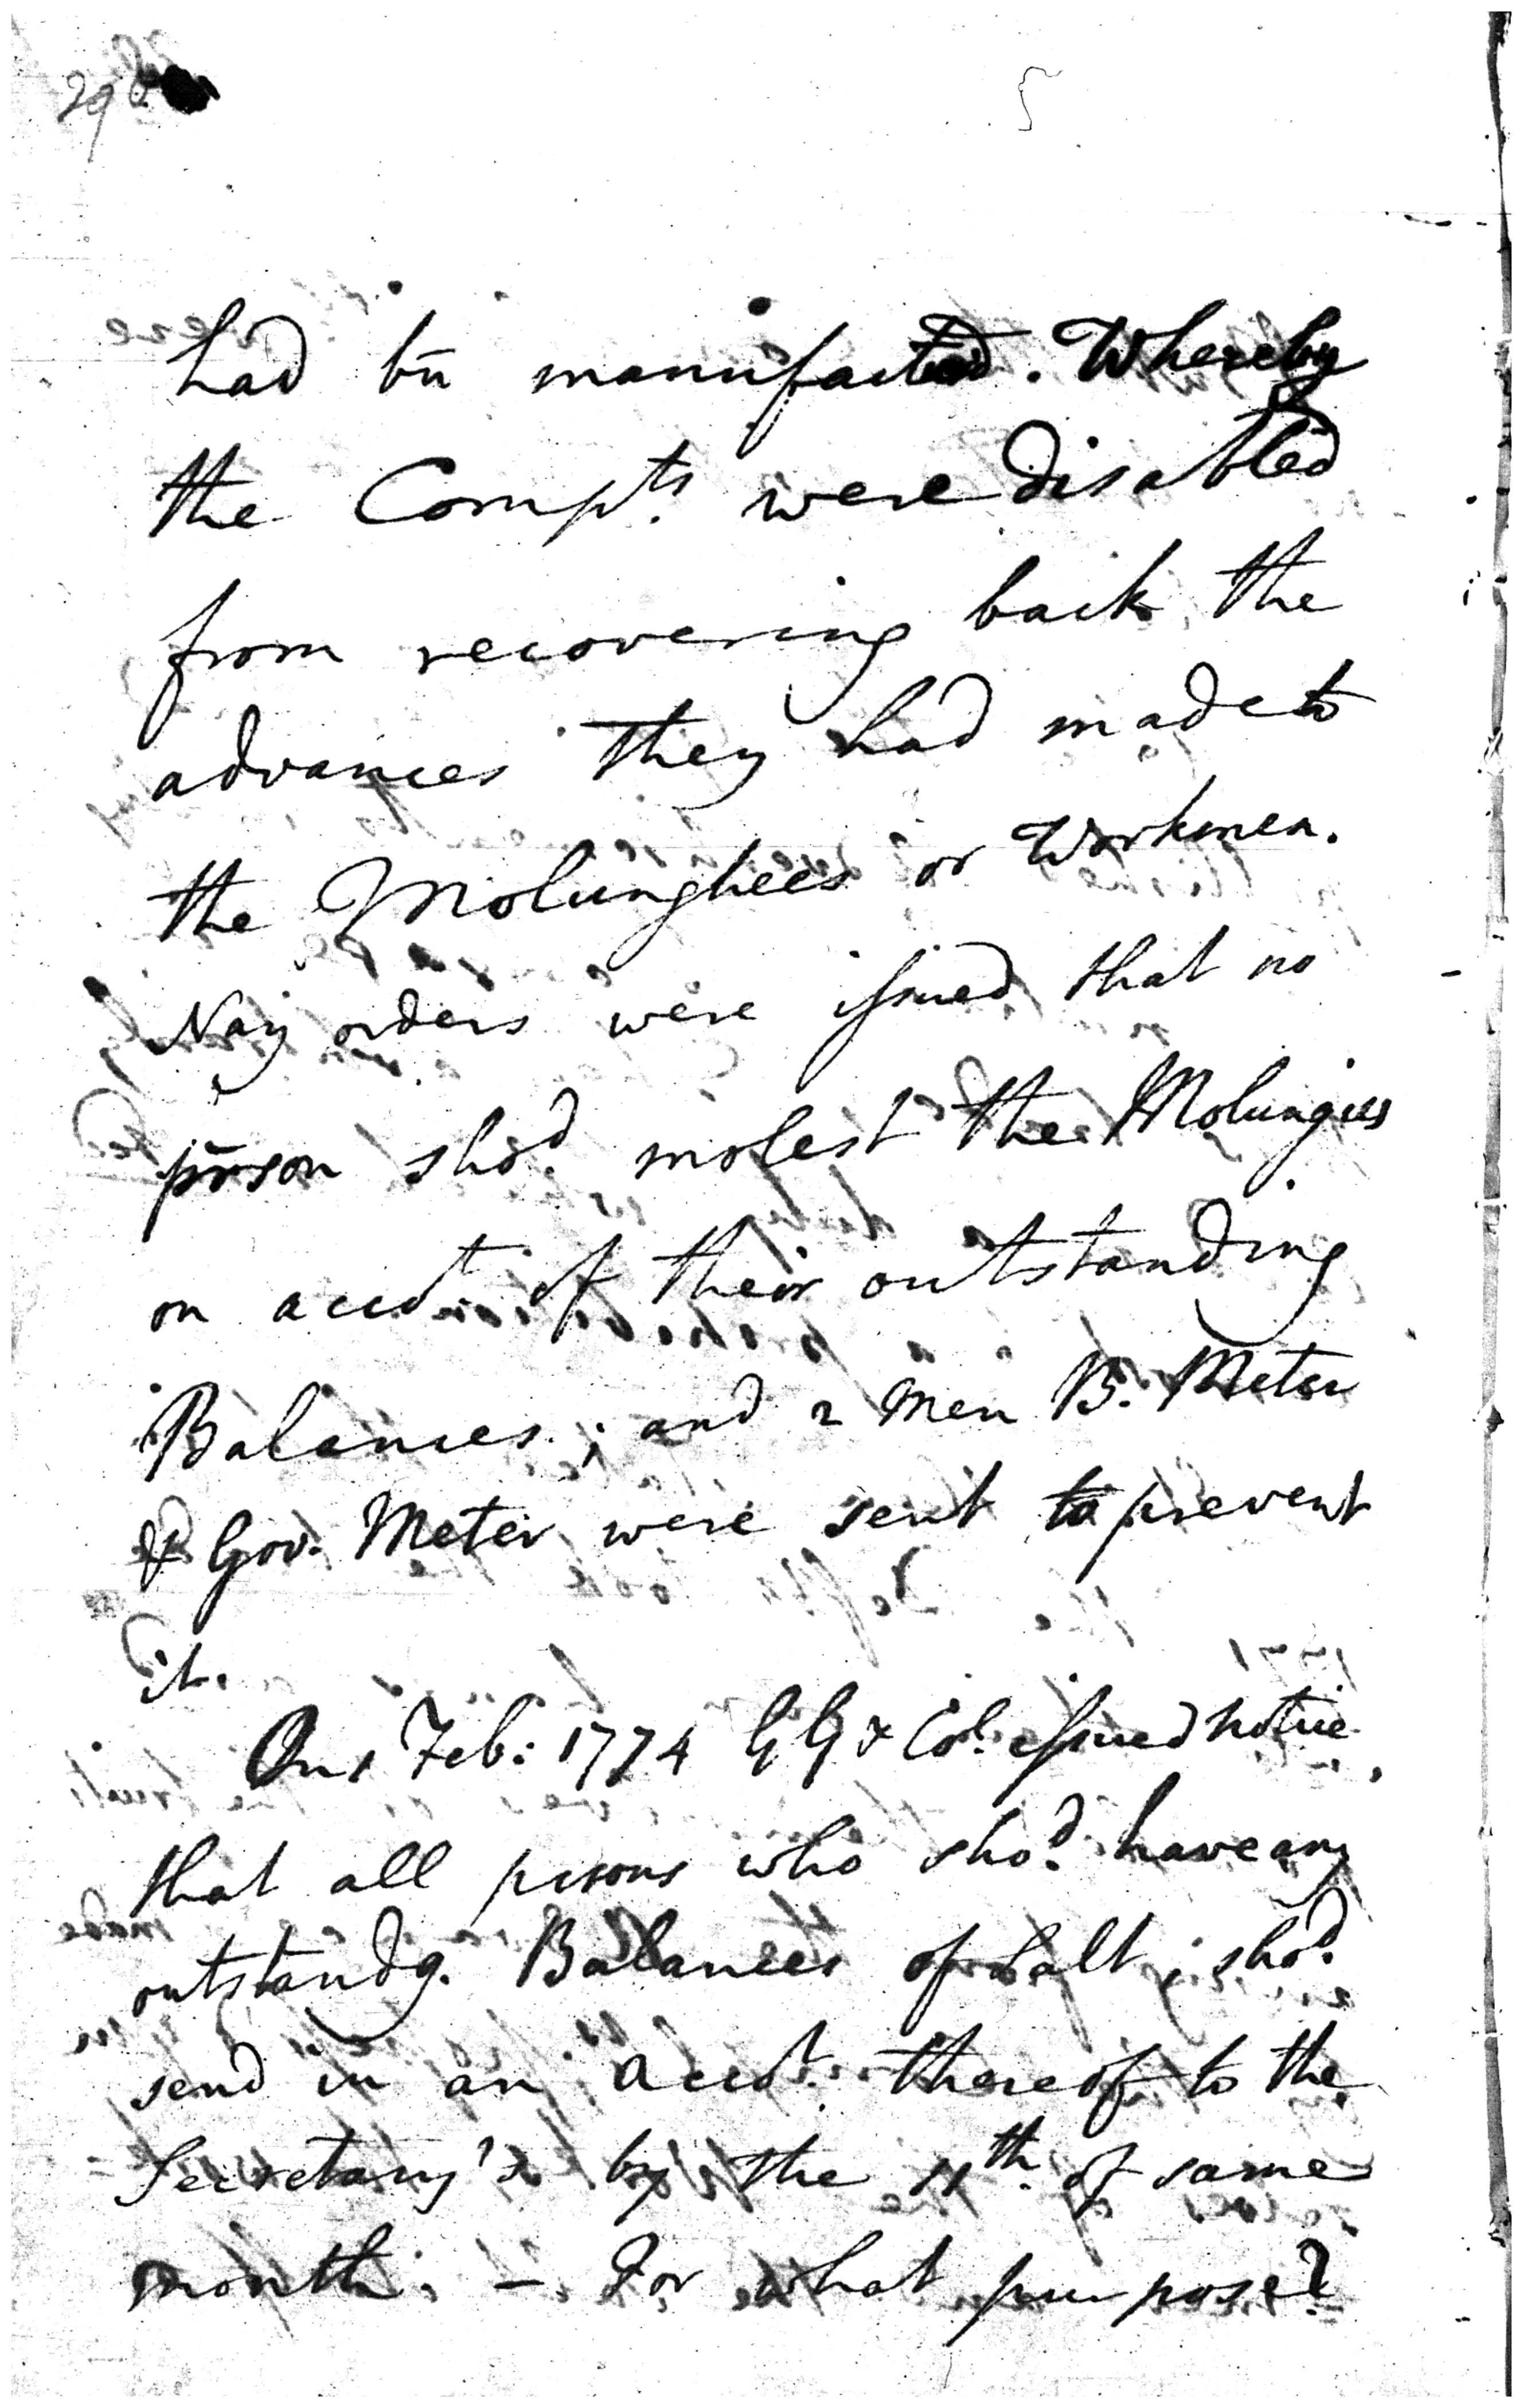 5
had bn̄ manufacted. Whereby
the Compts. were disabled
from recovering back the
advances they had made to
the Molunghees or Workmen.
Nay orders were issued that no
pr̄son shod. molest the Molungies
on accot. of their outstanding
Balances; and 2 Men B. Meter
& Gov. Meter were sent to prevent
it.
On 1 Feb: 1774 GG & Col. issued notice
that all persons who shod. have any
outstandg. Balances of Salt, shod.
send in an accot. thereof to the
Secretary's by the 11th. of same
month. – For what purpose?